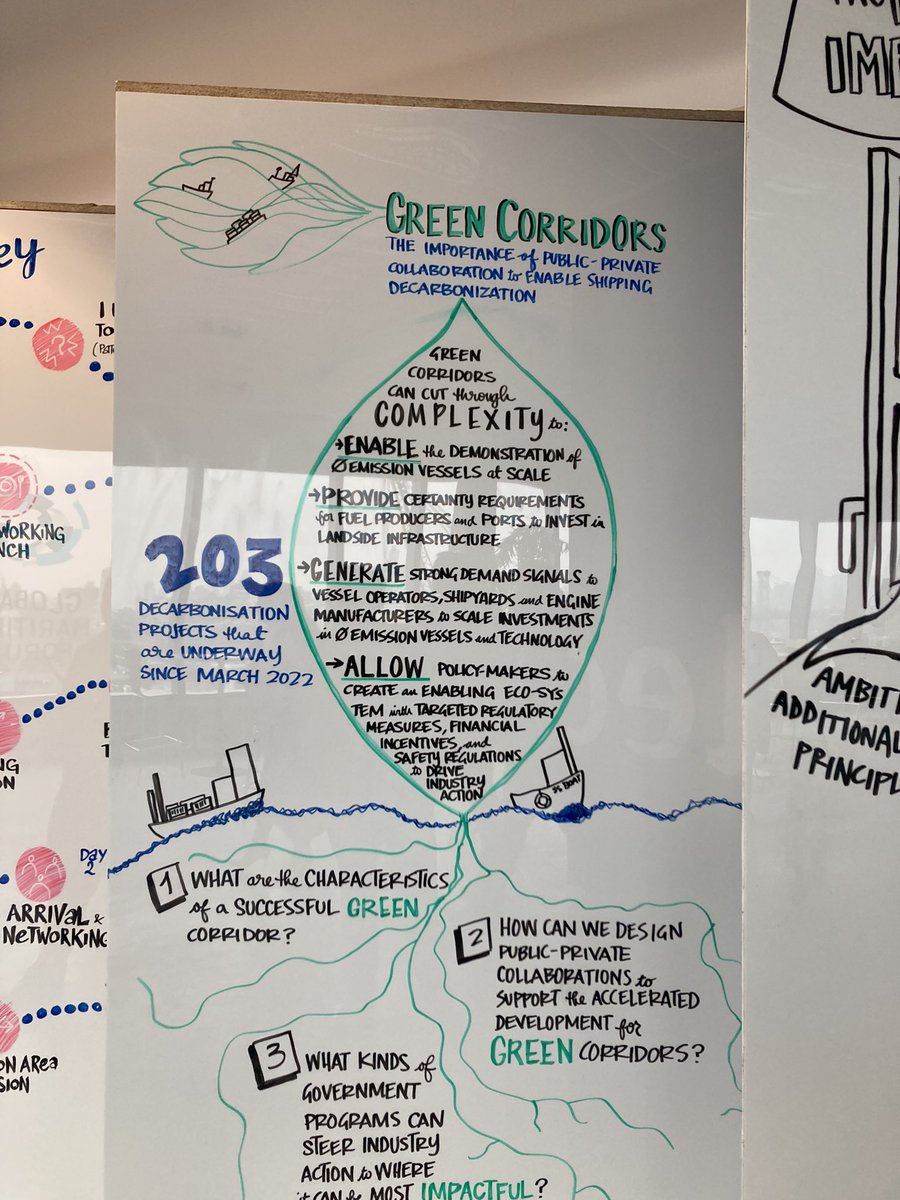 GREEN CORRIDORS
THE IMPORTANCE of PUBLIC-PRIVATE
COLLABORATION to ENABLE SHIPPING
DECARBONIZATION
GREEN
CORRIDORS
CAN CUT through
COMPLEXITY to:
→ENABLE the DEMONSTRATION of
Ø EMISSION VESSELS at SCALE
→PROVIDE CERTAINTY REQUIREMENTS
for FUEL PRODUCERS and PORTS to INVEST in
LANDSIDE INFRASTRUCTURE
→GENERATE STRONG DEMAND SIGNALS to
VESSEL OPERATORS, SHIPYARDS and ENGINE
MANUFACTURERS to SCALE INVESTMENTS
in Ø EMISSION VESSELS and TECHNOLOGY
→ALLOW POLICY-MAKERS to
CREATE an ENABLING ECO-SYS
TEM with TARGETED REGULATORY
MEASURES, FINANCIAL
INCENTIVES, and
SAFETY REGULATIONS
to DRIVE
INDUSTRY
ACTION
203
DECARBONISATION
PROJECTS that
are UNDERWAY
SINCE MARCH 2022
SS BOAT
1 WHAT are the CHARACTERISTICS
of a SUCCESSFUL GREEN
CORRIDOR?
2 HOW CAN WE DESIGN
PUBLIC-PRIVATE
COLLABORATIONS to
SUPPORT the ACCELERATED
DEVELOPMENT for
GREEN CORRIDORS?
3 WHAT KINDS of
GOVERNMENT
PROGRAMS CAN
STEER INDUSTRY
ACTION to WHERE
it CAN be MOST IMPACTFUL?
ey
?
WORKING
NCH
NG
ON
Day
2
ARRIVAL &
NETWORKING
ON AREA
SION
IMP
AMBITI
ADDITIONAL
PRINCIPL